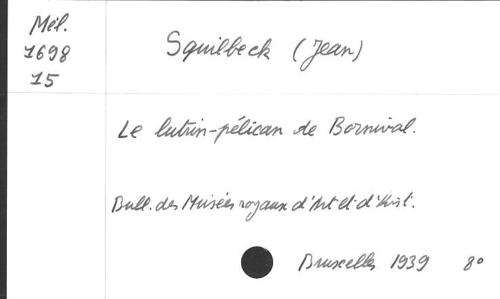 Mél.
1698
15
Squilbeck (Jean)
Le lutrin-pélican de Bornival.
Bull. des Musées royaux d'Art et d'Hist.
Bruxelles 1939 8°